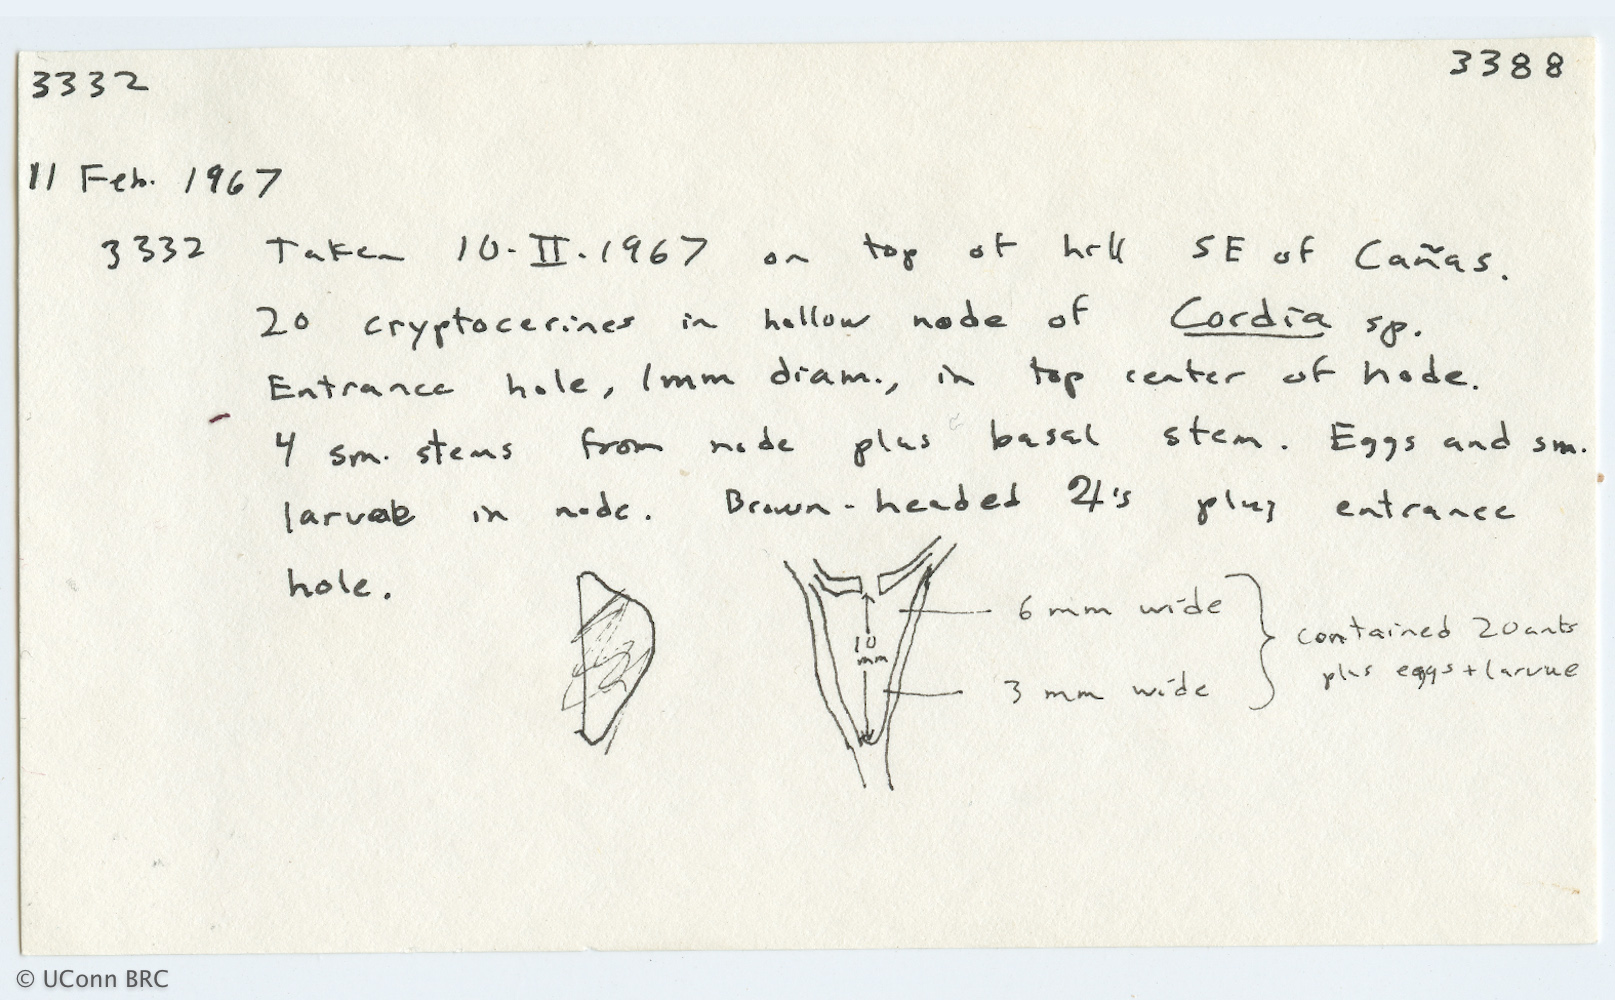 3332
3388
11 Feb. 1967
3332 Taken 10-II-1967 on top of hill SE of Cañas.
20 cryptocerines in hollow node of Cordia sp.
Entrance hole, 1mm diam., in top center of node.
4 sm. stems from node plus basal stem. Eggs and sm.
larvae in node. Brown-headed ♃'s plug entrance
hole.
10 mm
6 mm wide
3 mm wide
contained 20 ants
plus eggs + larvae
© UConn BRC